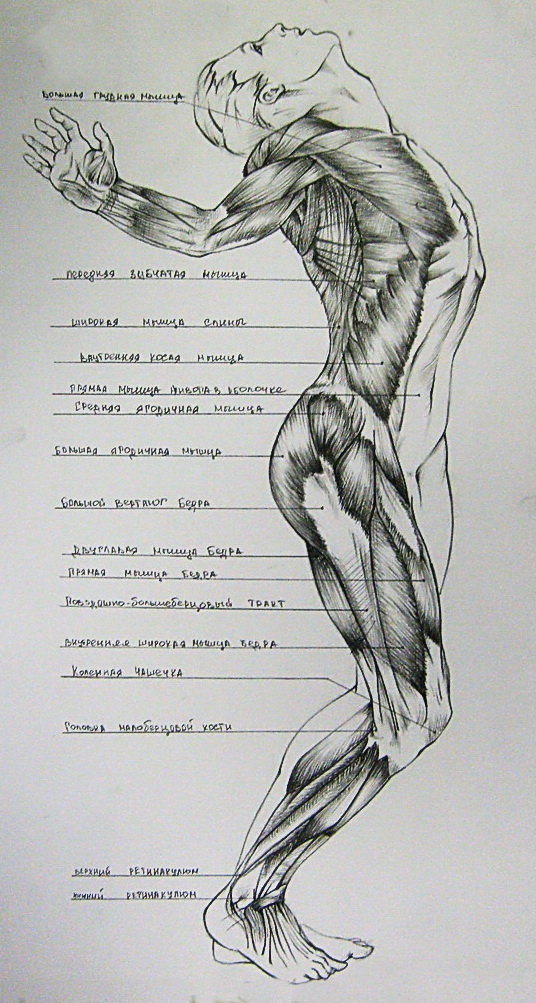 Большая грудная мышца
передняя зубчатая мышца
широкая мышца спины
внутренняя косая мышца
прямая мышца живота в оболочке
средняя ягодичная мышца
большая ягодичная мышца
большой вертлюг бедра
двуглавая мышца бедра
прямая мышца бедра
Подвздошно-большеберцовый тракт
внутренняя широкая мышца бедра
Коленная чашечка
Головка малоберцовой кости
верхний ретинакулюм
нижний ретинакулюм